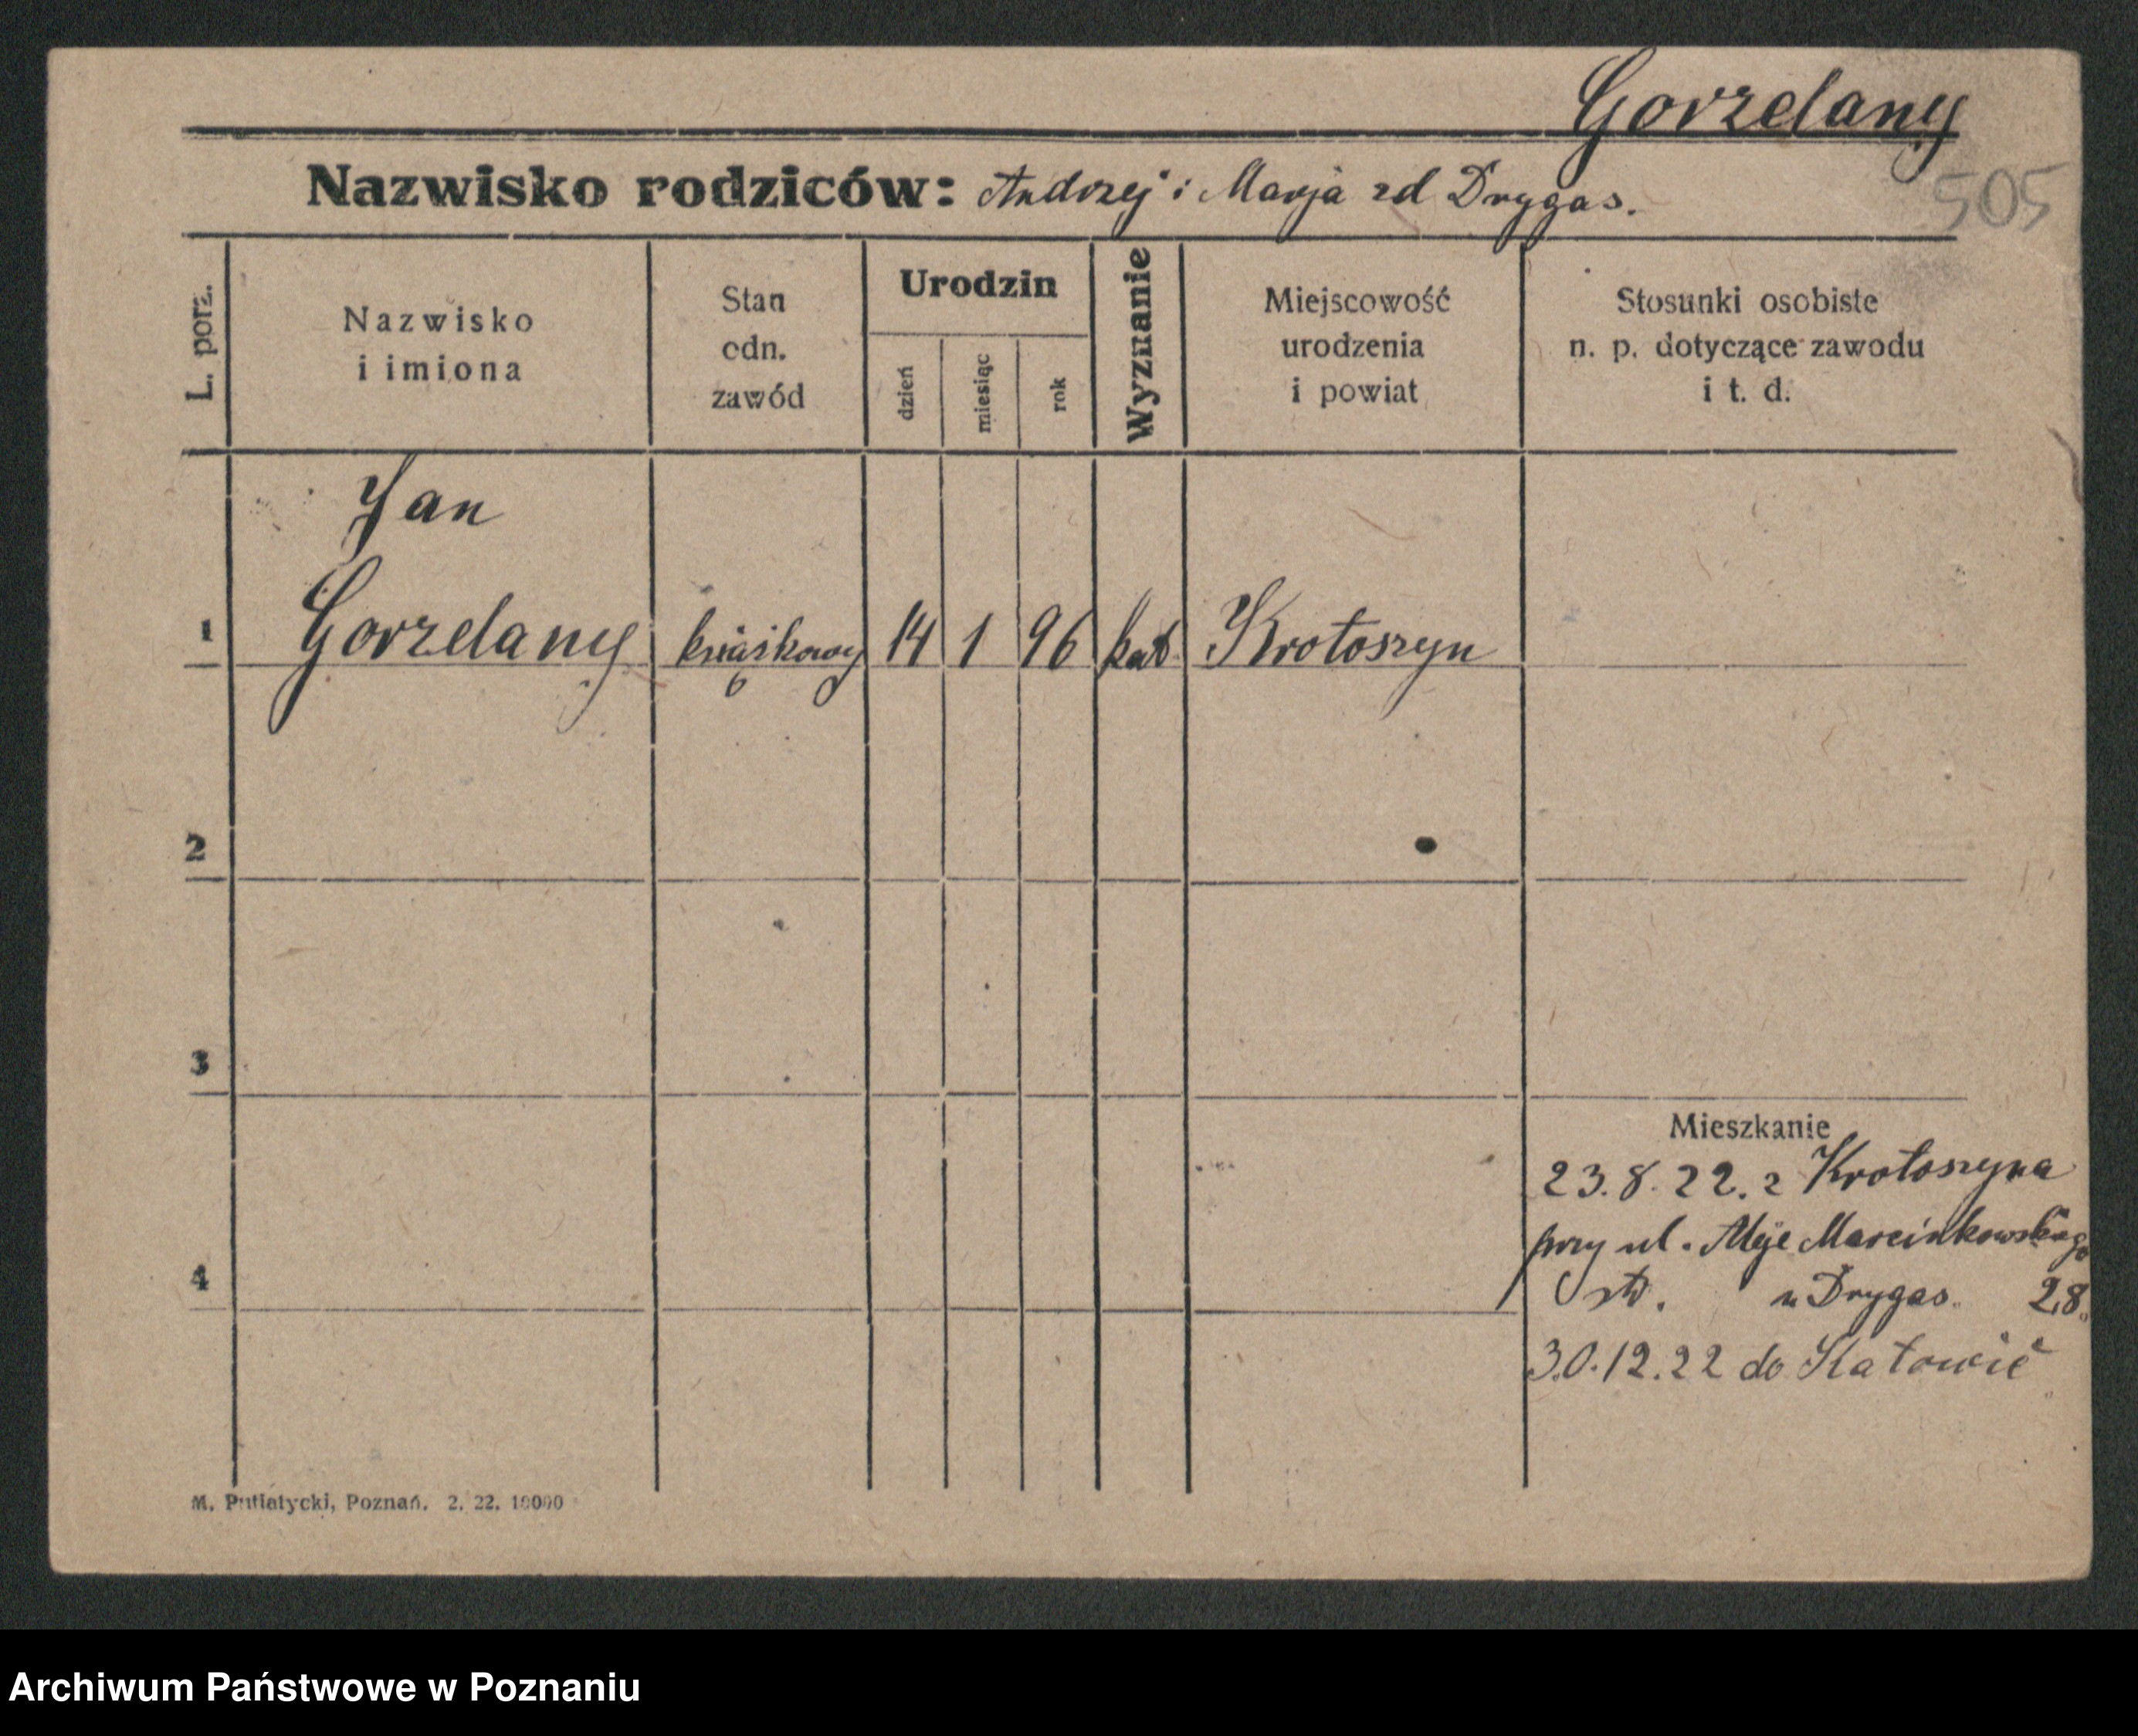 Gorzelany
Nazwisko rodziców: Andrzej i Marja zd Drygas.
505
L. porz.
Nazwisko
i imiona
Stan
odn.
zawód
Urodzin
dzień
miesiąc
rok
Wyznanie
Miejscowość
urodzenia
i powiat
Stosunki osobiste
n. p. dotyczące zawodu
i t. d.
Jan
1 Gorzelany książkowy 14 1 96 kat Krotoszyn
2
3
4
Mieszkanie
23.8.22. z Krotoszyna
przy ul. Aleje Marcinkowskiego
u Drygas. 28.
30.12.22 do Katowic
M. Putiatycki, Poznań. 2. 22. 10000
Archiwum Państwowe w Poznaniu